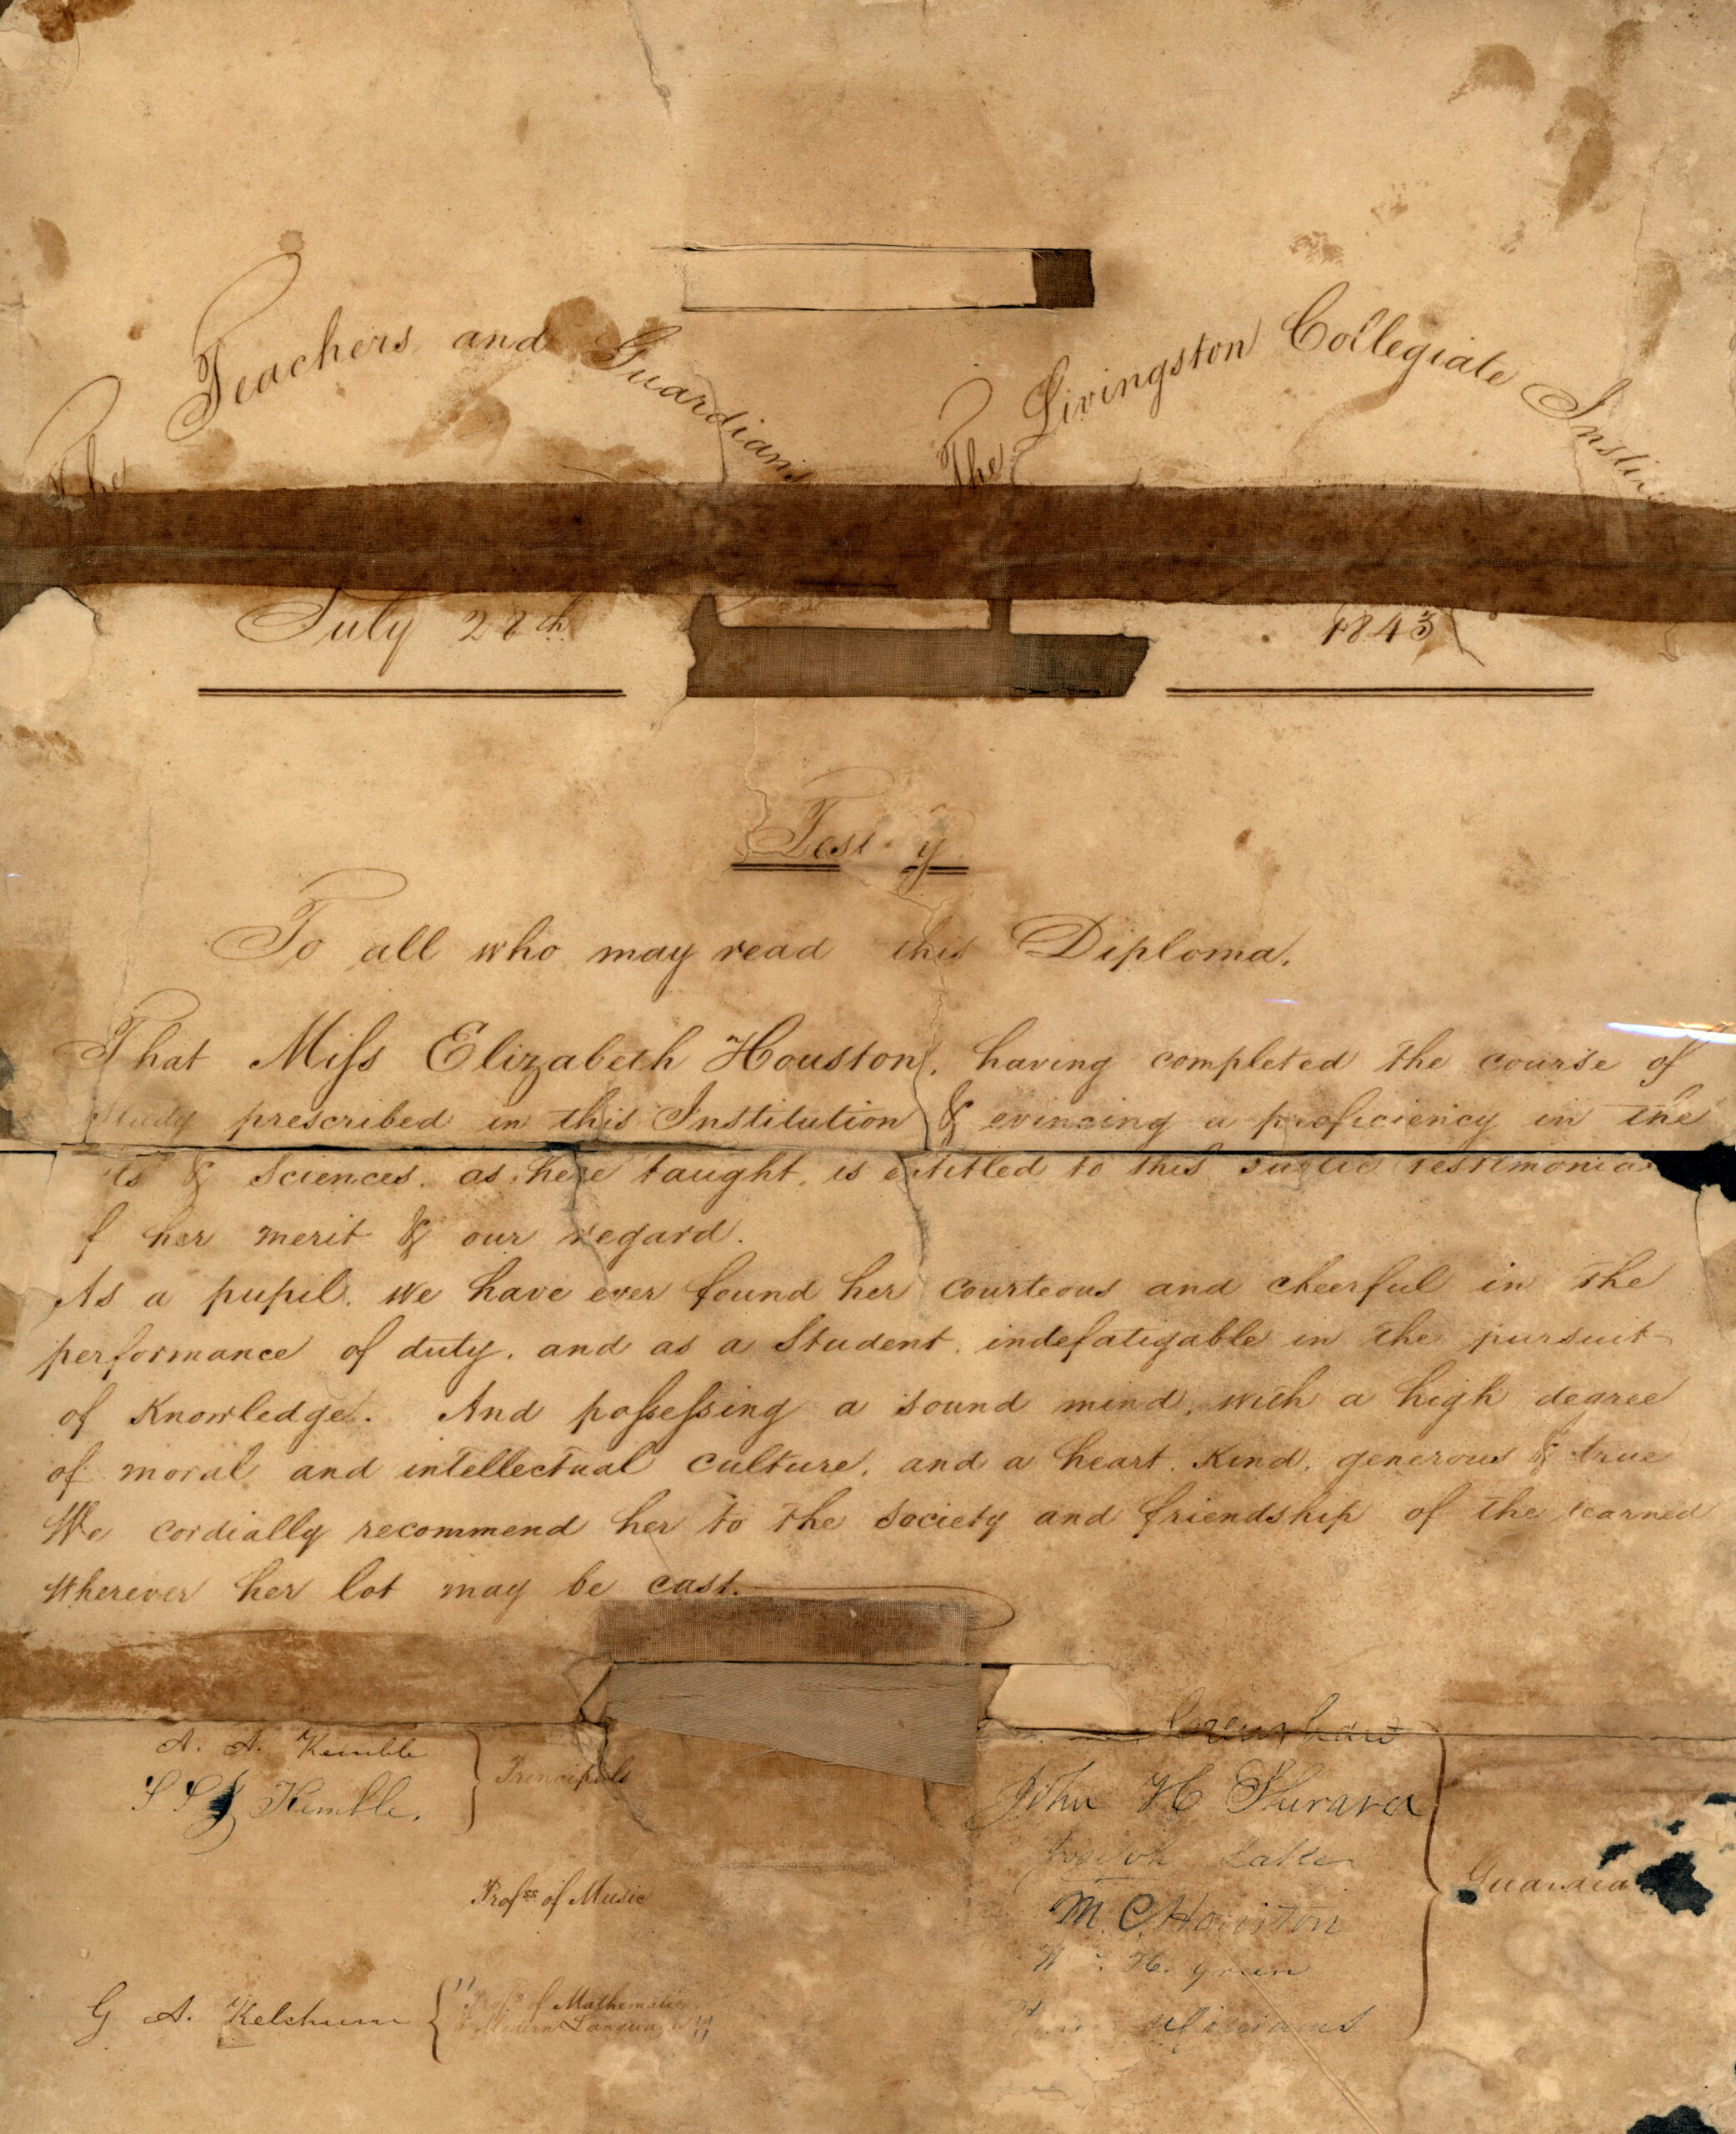 The Teachers and Guardians The Livingston Collegiate
July 28th 1843
To all who may read this Diploma.
That Miſs Elizabeth Houston, having completed the course of
Study prescribed in this Institution & evincing a proficiency in the
ts & Sciences. as here taught, is entitled to this testimonia
f her merit & our regard.
As a pupil. we have ever found her courteous and cheerful in the
performance of duty, and as a Student, indefatigable in the pursuit
of Knowledge. And poſseſsing a sound mind, with a high degree
of moral and intellectual culture, and a heart. Kind. generous & true
We cordially recommend her to the Society and friendship of the learned
Wherever her lot may be cast.
Crenshaw
A. A. Kimble Principals
S S Kimble.
John H
Joseph Lake
Profss of Music
M. C. Houston
W. H. Green
G A. Ketchum Profs of Mathematics
& Modern Languages